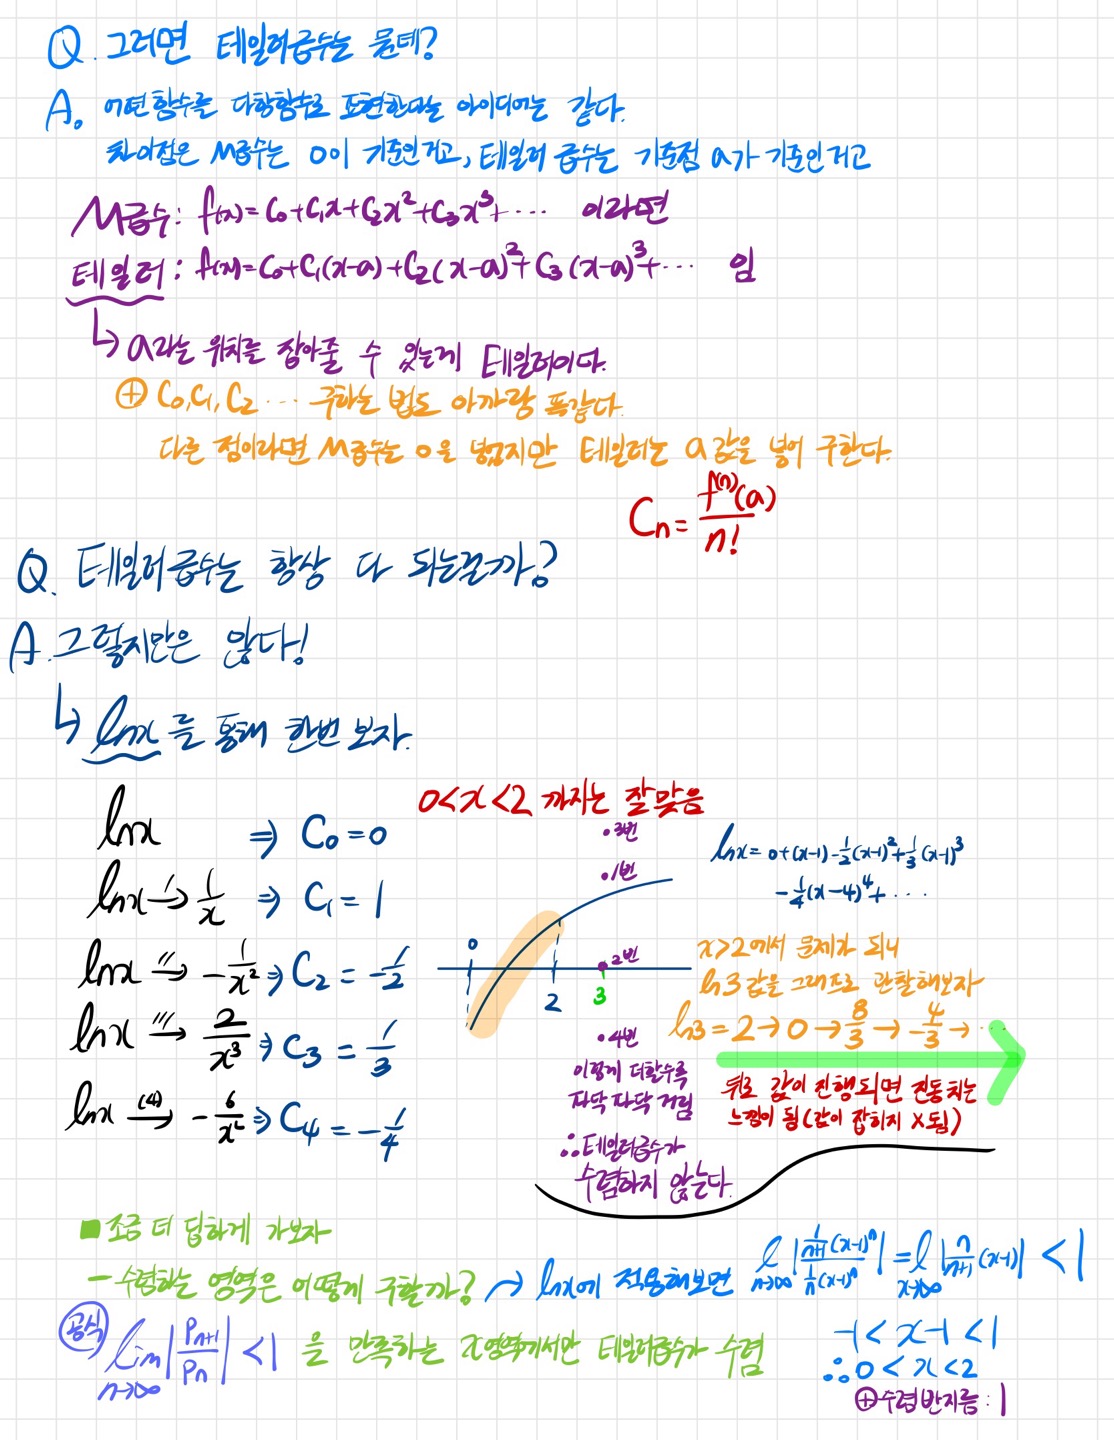 Q. 그러면 테일러급수는 뭔데?
A. 어떤함수를 다항함수로 표현한다는 아이디어는 같다.
차이점은 M급수는 0이 기준인거고, 테일러 급수는 기준점 a가 기준인거고
M급수: f(x)=C₀+C₁x+C₂x²+C₃x³+⋯ 이라면
테일러: f(x)=C₀+C₁(x-a)+C₂(x-a)²+C₃(x-a)³+⋯ 임
↳ a라는 위치를 잡아줄 수 있는게 테일러이다.
⊕ C₀,C₁,C₂⋯ 구하는 법도 아까랑 똑같다.
다른 점이라면 M급수는 0을 넣었지만 테일러는 a값을 넣어 구한다.
Cn = f⁽ⁿ⁾(a)/n!
Q. 테일러급수는 항상 다 되는걸까?
A. 그렇지만은 않다!
↳ lnx를 통해 한번 보자.
lnx ⇒ C₀=0
lnx →′ 1/x ⇒ C₁=1
lnx →″ -1/x² ⇒ C₂=-1/2
lnx →‴ 2/x³ ⇒ C₃=1/3
lnx →⁽⁴⁾ -6/x² ⇒ C₄=-1/4
0<x<2 까지는 잘맞음
•3번
•1번
0
•2번
2
3
•4번
이렇게 더할수록
자닥 자닥 거림
∴테일러급수가
수렴하지 않는다.
lnx=0+(x-1)-1/2(x-1)²+1/3(x-1)³
-1/4(x-4)⁴+⋯
x>2에서 문제가 되니
ln3 값을 그래프로 관찰해보자
ln3=2→0→8/3→-4/3→⋯
뒤로 값이 진행되면 진동치는
느낌이 됨(값이 잡히지 X됨)
■조금 더 딥하게 가보자
-수렴하는 영역은 어떻게 구할까? → lnx에 적용해보면 l n→∞ |1/(n+1)(x-1)ⁿ / 1/n(x-1)ⁿ| = l x→∞ |n/(n+1)(x-1)| <1
공식 lim n→∞ |Pn+1/Pn| <1 을 만족하는 x영역에서만 테일러급수가 수렴
-1<x-1<1
∴0<x<2
⊕수렴반지름: 1